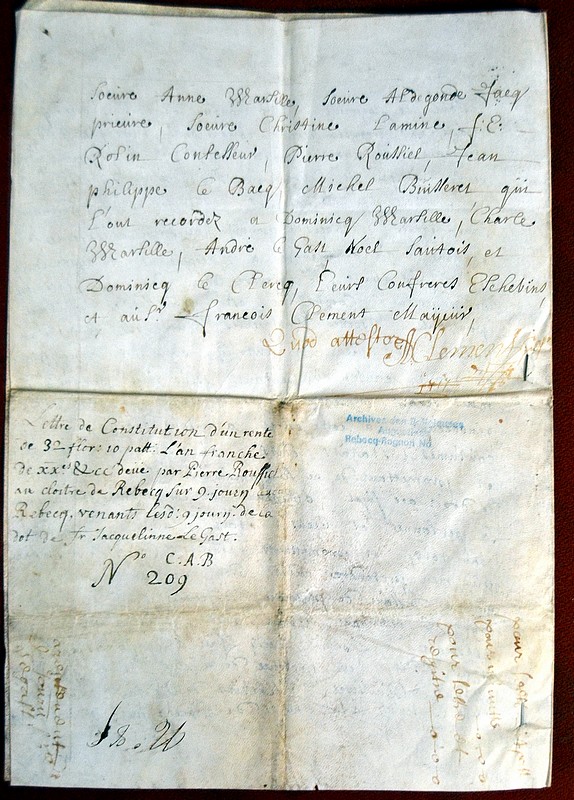 Soeure Anne Marsille, Soeure Aldegonde Jacq
prieure, Soeure Christine Lamine, f: E:
Robin Confesseur, Pierre Roussiel, Jean
philippe le Bacq, Michel Buisseret qui
l'ont recordez et Dominicq Marsille, Charle
Marsille, André le Gast Noel Sautois, et
Dominicq le Clercq, leurs Confreres Eschevins
et au Sr. francois Clement Mayeur,
Quod attestor Clement
Lettre de Constitution d'un rente
de 32 flors 10 patt: L'an franche
de xxe & cc deue par Pierre Roussie
au cloitre de Rebecq sur 9. journ
Rebecq. venants lesd: 9 journ. de la
dot de Sr Jacquelinne Le Gast.
C. A. B
No 209
Archives des Religieuses
Augustines
Rebecq-Rognon No
pour
pour
pour